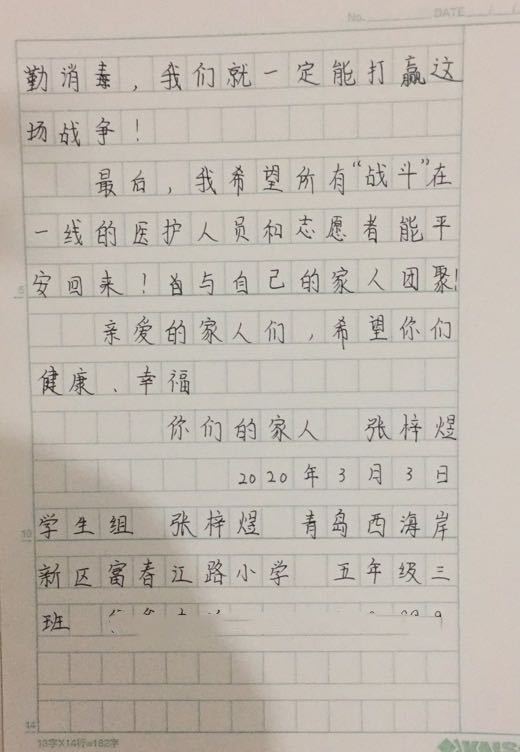 No. DATE / /
勤消毒，我们就一定能打赢这
场战争！
最后，我希望所有“战斗”在
一线的医护人员和志愿者能平
安回来！与自己的家人团聚！
亲爱的家人们，希望你们
健康、幸福
你们的家人 张梓煜
2020年3月3日
学生组 张梓煜 青岛西海岸
新区富春江路小学 五年级三
班
5
10
14
13字X14行=182字